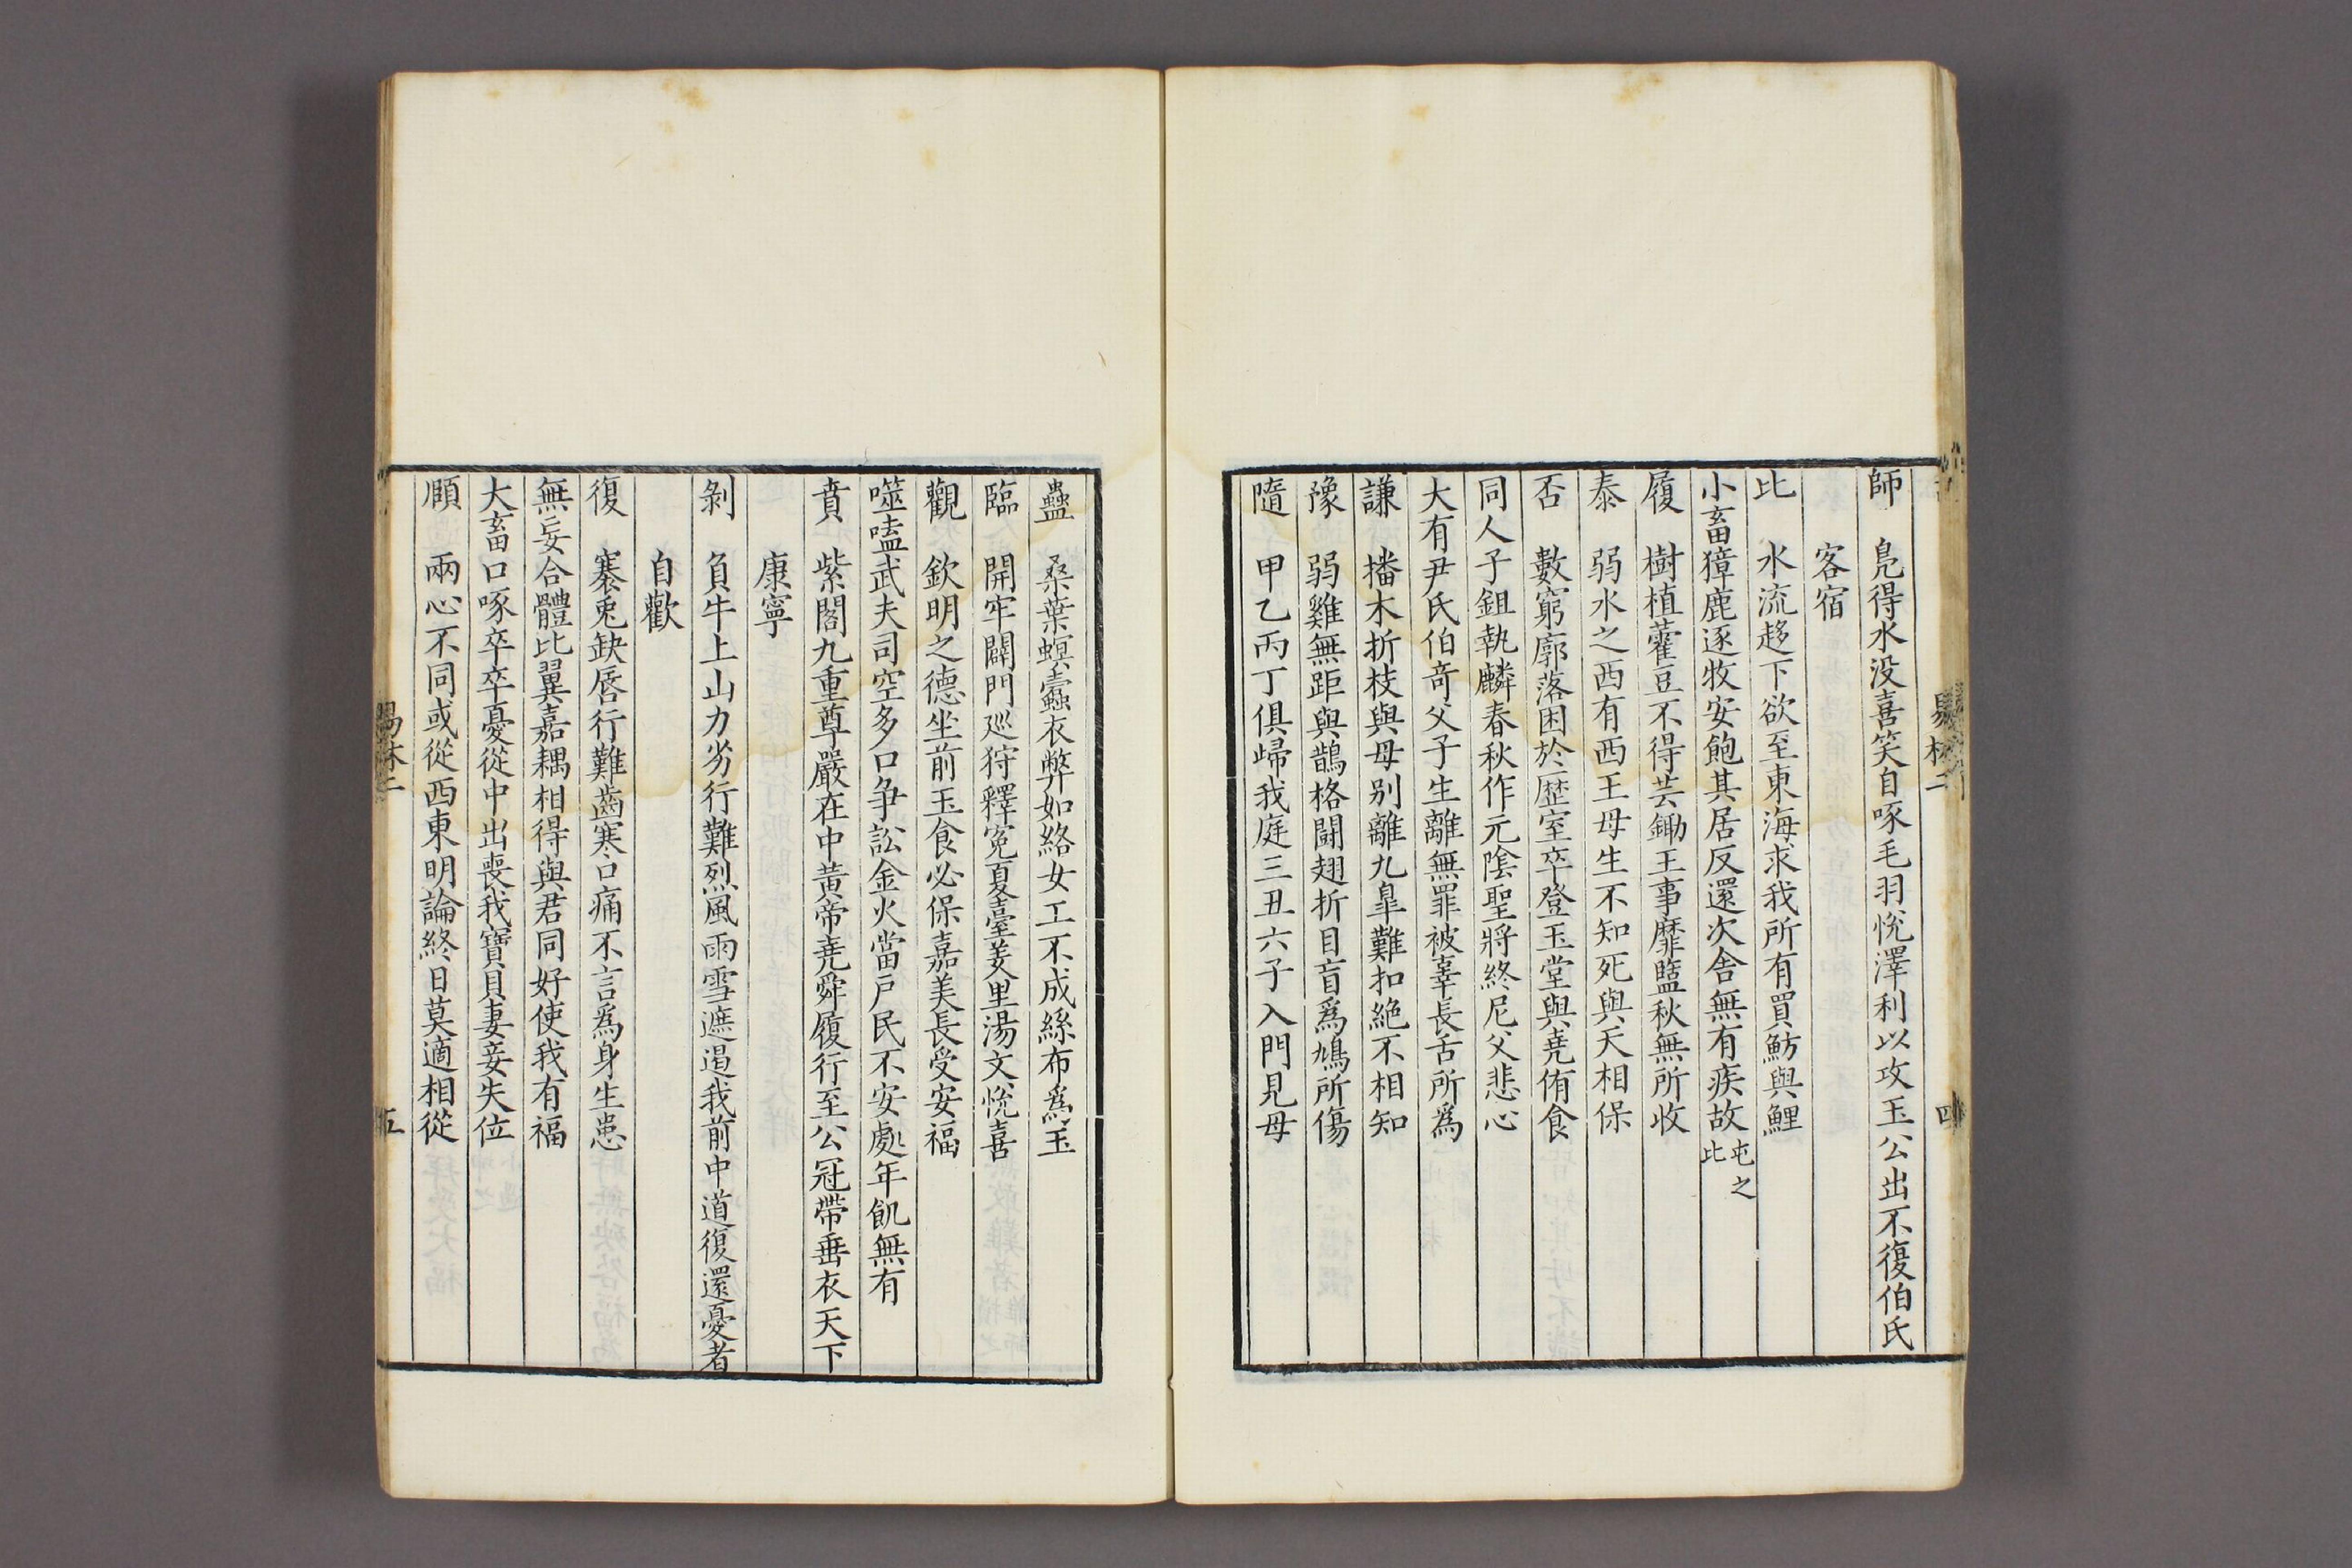 師　鳧得水没喜笑自啄毛羽悅澤利以攻玉公出不復伯氏
客宿
比　水流趍下欲至東海求我所有買魴與鯉
小畜獐鹿逐牧安飽其居反還次舍無有疾故屯之比
履　樹植藿豆不得芸鋤王事靡盬秋無所收
泰　弱水之西有西王母生不知死與天相保
否　數窮廓落困於歷室卒登玉堂與堯侑食
同人子鉏執麟春秋作元陰聖將終尼父悲心
大有尹氏伯奇父子生離無罪被辜長舌所爲
謙　播木折枝與母别離九臯難扣絶不相知
豫　弱雞無距與鵲格鬬翅折目盲爲鳩所傷
隨　甲乙丙丁俱歸我庭三丑六子入門見母
易林二
四
蠱　桑葉螟蠹衣弊如絡女工不成絲布爲玉
臨　開牢闢門廵狩釋寃夏臺羑里湯文悅喜
觀　欽明之德坐前玉食必保嘉美長受安福
噬嗑武夫司空多口争訟金火當戸民不安處年飢無有
賁　紫閣九重尊嚴在中黄帝堯舜履行至公冠帶垂衣天下
康寧
剝　負牛上山力劣行難烈風雨雪遮遏我前中道復還憂者
自歡
復　褰兎缺唇行難齒寒口痛不言爲身生患
無妄合體比翼嘉耦相得與君同好使我有福
大畜口啄卒卒憂從中出喪我寶貝妻妾失位
頤　兩心不同或從西東明論終日莫適相從
易林二
五